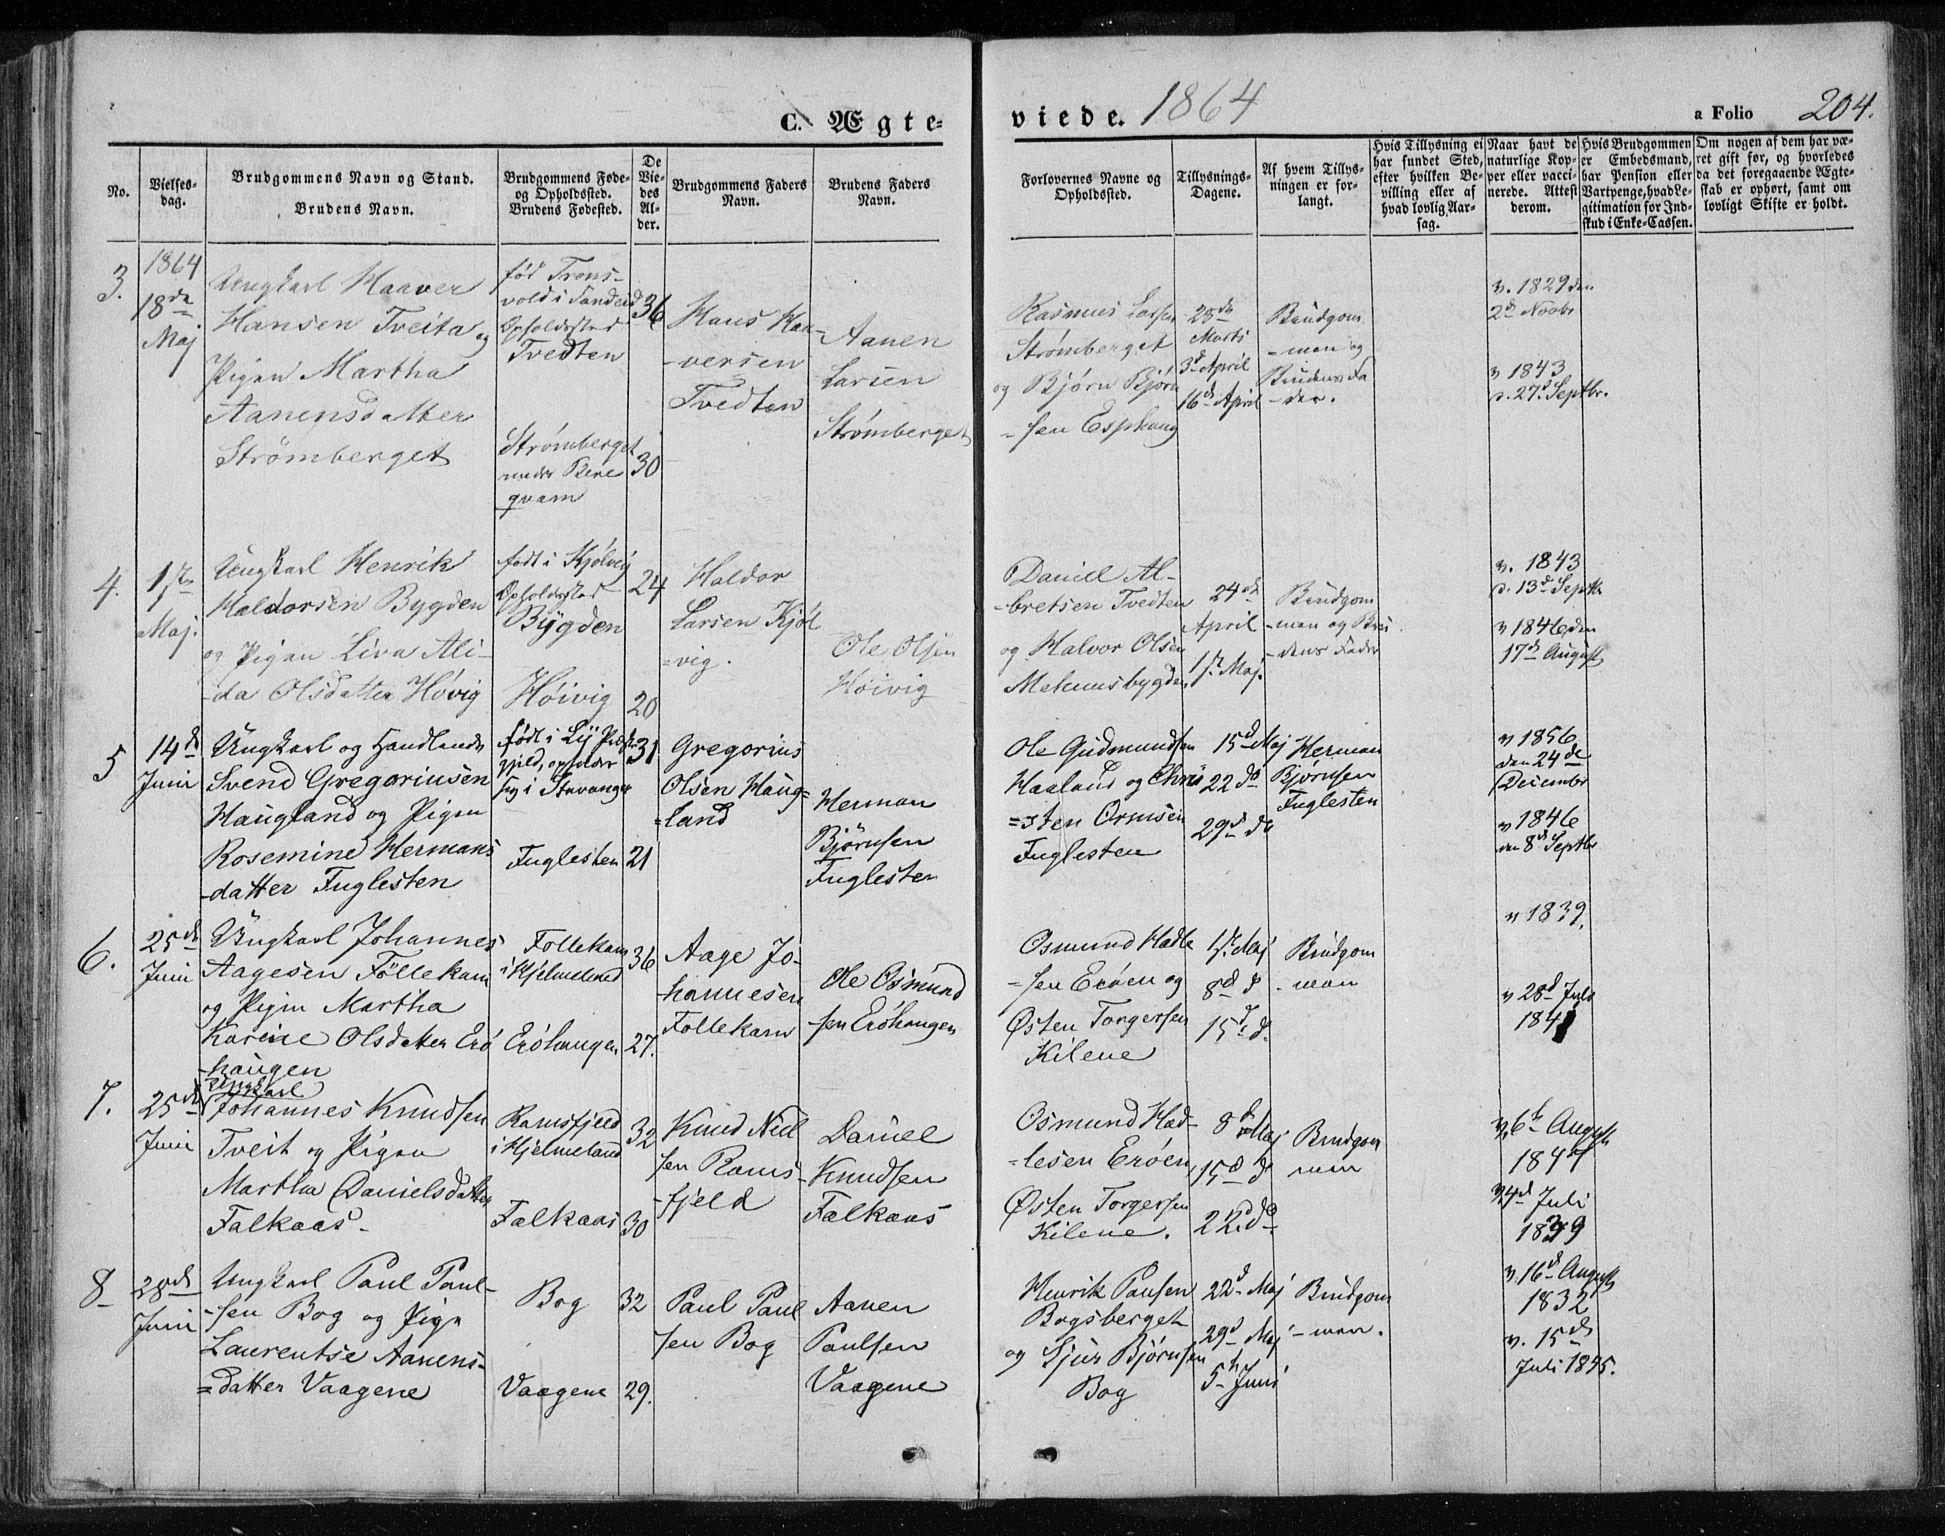 C. Ægte-
viede. 1864
a Folio 204.
No.
Vielses-
dag.
Brudgommens Navn og Stand.
Brudens Navn.
Brudgommens Føde-
og Opholdssted.
Brudens Fødested.
De
Vie-
des
Al-
der.
Brudgommens Faders
Navn.
Brudens Faders
Navn.
Forlovernes Navne og
Opholdssted.
Tillysnings-
Dagene.
Af hvem Tillys-
ningen er for-
langt.
Hvis Tillysning ei
har fundet Sted,
efter hvilken Be-
villing eller af
hvad lovlig Aar-
sag.
Naar havt de
naturlige Kop-
per eller vacci-
nerede. Attest
derom.
Hvis Brudgommen
er Embedsmand,
har Pension eller
Vartpenge, hvad Le-
gitimation for Ind-
skud i Enke-Cassen.
Om nogen af dem har væ-
ret gift før, og hvorledes
da det foregaaende Ægte-
skab er ophørt, samt om
lovligt Skifte er holdt.
3.
1864
18de
Maj
Ungkarl Haaver
Hansen Tveita og
Pigen Martha
Aanensdatter
Strømberget
fød Trons-
vold i Sandeid
Opholdssted
Tvedten
Strømberget
under
qvam
36
30
Hans Haa-
-versen
Tvedten
Aanen
Larsen
Strømberget
Rasmus Larsen
Strømberget
og Bjørn Bjørn
-sen Esphaug
28de
Marts
3d April
16d April
Brudgom
-men og
Brudens Fa
-der.
v. 1829 den
2d Novbr
v 1843
d. 27d Septbr.
4.
1ste
Maj.
Ungkarl Henrik
Haldorsen Bygden
og Pigen Liva Ali-
-da Olsdatter Høvig
født i Kjølvig
Opholdssted
Bygden
Høivig
24
20
Haldor
Larsen Kjøl
=vig.
Ole Olsen
Høivig
Daniel Al-
-bretsen Tvedten
og Halvor Olsen
Mehuusbygden
24de
April
1st Maj.
Brudgom
-men og Bru
-dens Fader
v. 1843
d. 13d Septbr
v 1846 den
17d August
5
14d
Juni
Ungkarl og Handlende
Svend Gregoriusen
Haugland og Pigen
Rosemine Hermans
-datter Fuglesten
født i Lye Præste
gjeld, opholder
sig i Stavanger
Fuglesten
31
21
Gregorius
Olsen Haug=
=land
Herman
Bjørnsen
Fuglesten
Ole Gudmundsen
Haaland og Chri
=sten Ormsen
Fuglesten
15d Maj
22 do
29d do
Herman
Bjørnsen
Fuglesten
v 1856
den 24de
December
v 1846
den 8d Septbr
6.
25d
Juni
Ungkarl Johannes
Aagesen Føllekam
og Pigen Martha
Karine Olsdatter Erø
-haugen
Follekam
i Hjelmeland
Erøhaugen
36
27.
Aage Jo-
-hannesen
Follekam
Ole Osmund
sen Erøhaugen
Osmund Hadle
=sen Erøen og
Østen Torgersen
Kilene
1st Maj
8d d
15d d.
Brudgom
-men
v 1839.
v 28d Juli
184
7.
25d
Juni
Ungkarl
Johannes Knudsen
Tveit og Pigen
Martha Danielsdatter
Falkaas
Ramsfjeld
i Hjelmeland
Falkaas
32
30
Knud Niel
sen Rams-
-fjeld
Daniel
Knudsen
Falkaas
Osmund Had-
-lesen Erøen
Østen Torgersen
Kilene.
8d Maj
15d d
22d do
Brudgom
men
v. 6te August
184
v 4d Juli
1839
8
28d
Juni
Ungkarl Paul Paul-
-sen Bog og Pige
Laurentse Aanens-
=datter Vaagene
Bog
Vaagene
32
29.
Paul Paul
sen Bog
Aanen
Paulsen
Vaagene
Henrik Paulsen
Bogsberget
og Sjur Bjørnsen
Bog
22d Maj
29d Maj
5te Juni
Brudgom
-men.
v. 16d August
1832
v. 15d
Juli 1845.